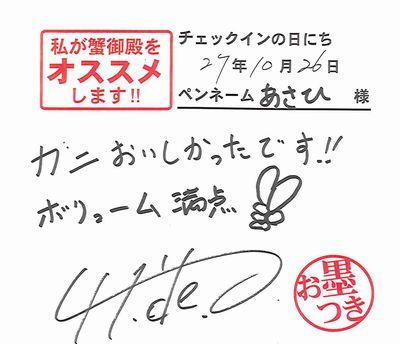 私が蟹御殿を
オススメ
します!!
チェックインの日にち
27年10月26日
ペンネーム あさひ 様
カニおいしかったです!!
ボリューム満点
お墨つき